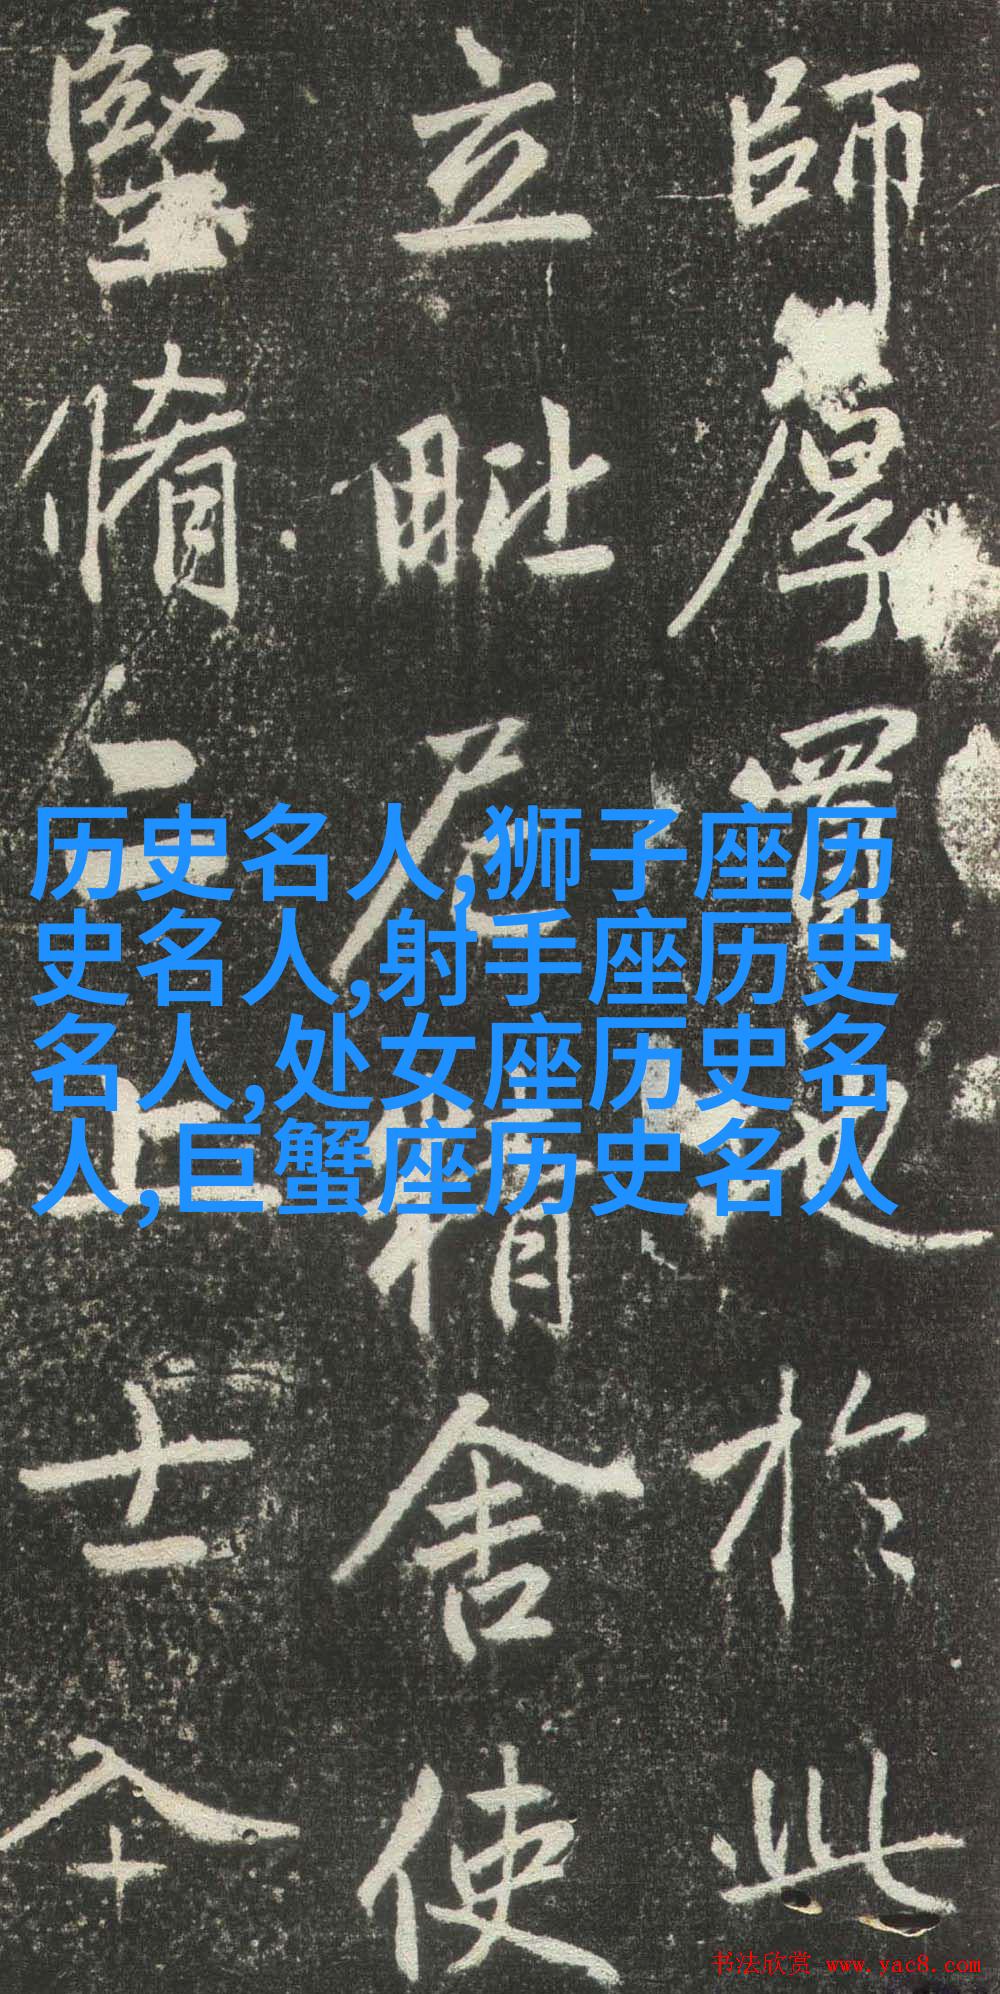 師厚買地於此
立毗尼精舍使
堅脩二上士今
历史名人,狮子座历
史名人,射手座历史
名人,处女座历史名
人,巨蟹座历史名人
书法欣赏 www.yac8.com